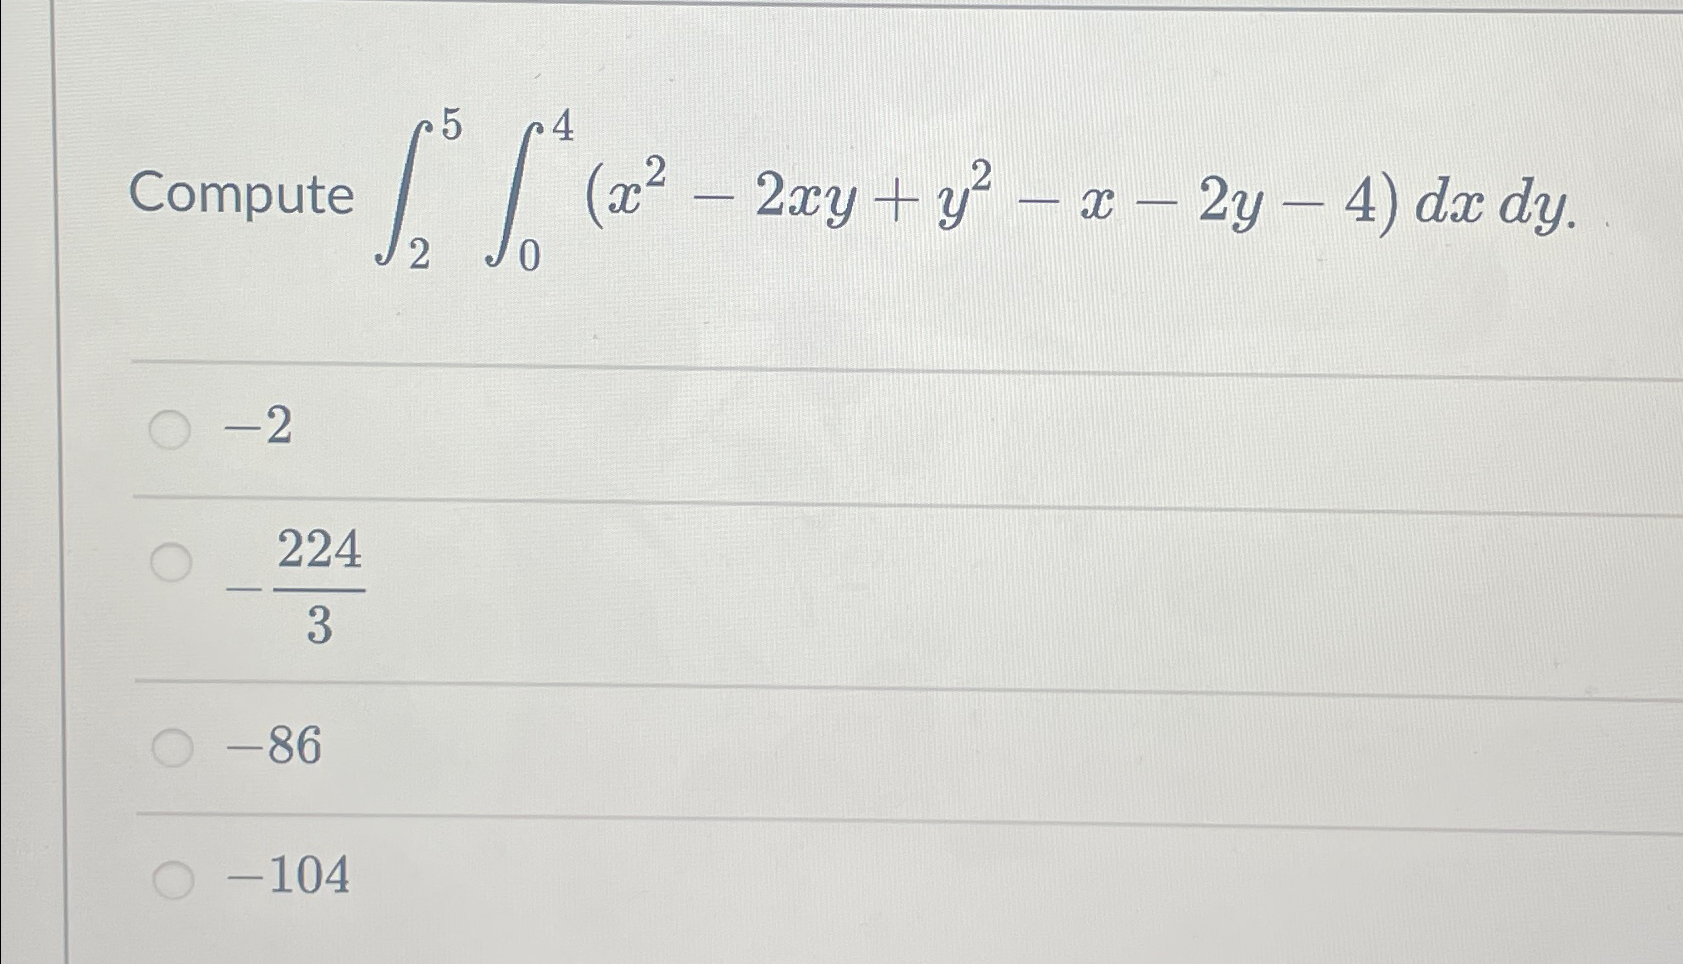 Compute $\int_{2}^{5} \int_{0}^{4} (x^2 - 2xy + y^2 - x - 2y - 4) \, dx \, dy.$
$-2$
$-\frac{224}{3}$
$-86$
$-104$